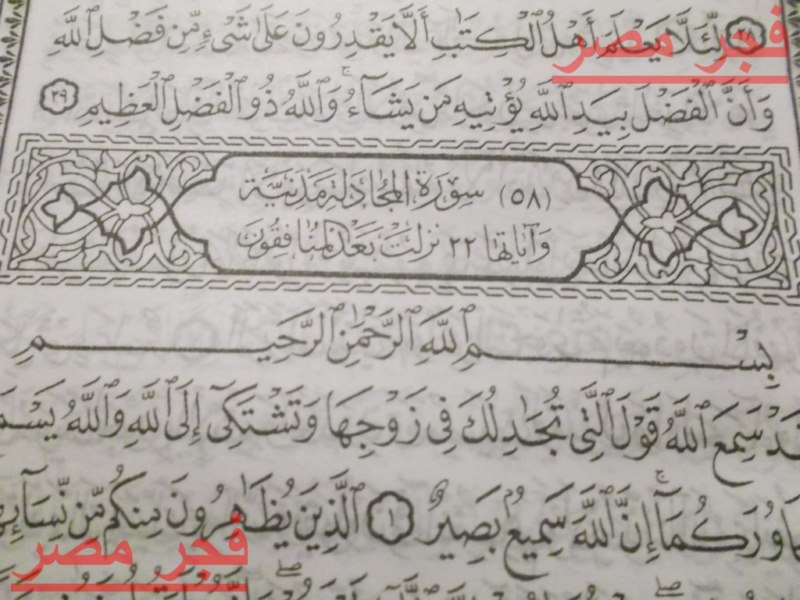 ٢٨ لِّئَلَّا يَعْلَمَ أَهْلُ ٱلْكِتَٰبِ أَلَّا يَقْدِرُونَ عَلَىٰ شَىْءٍ مِّن فَضْلِ ٱللَّهِ
فجر مصر
وَأَنَّ ٱلْفَضْلَ بِيَدِ ٱللَّهِ يُؤْتِيهِ مَن يَشَآءُ ۚ وَٱللَّهُ ذُو ٱلْفَضْلِ ٱلْعَظِيمِ ٢٩
(٥٨) سورة المجادلة مدنية
وآياتها ٢٢ نزلت بعد المنافقون
بِسْمِ ٱللَّهِ ٱلرَّحْمَٰنِ ٱلرَّحِيمِ
قَدْ سَمِعَ ٱللَّهُ قَوْلَ ٱلَّتِى تُجَٰدِلُكَ فِى زَوْجِهَا وَتَشْتَكِىٓ إِلَى ٱللَّهِ وَٱللَّهُ
إِنَّ ٱللَّهَ سَمِيعٌۢ بَصِيرٌ ١ ٱلَّذِينَ يُظَٰهِرُونَ مِنكُم مِّن
فجر مصر